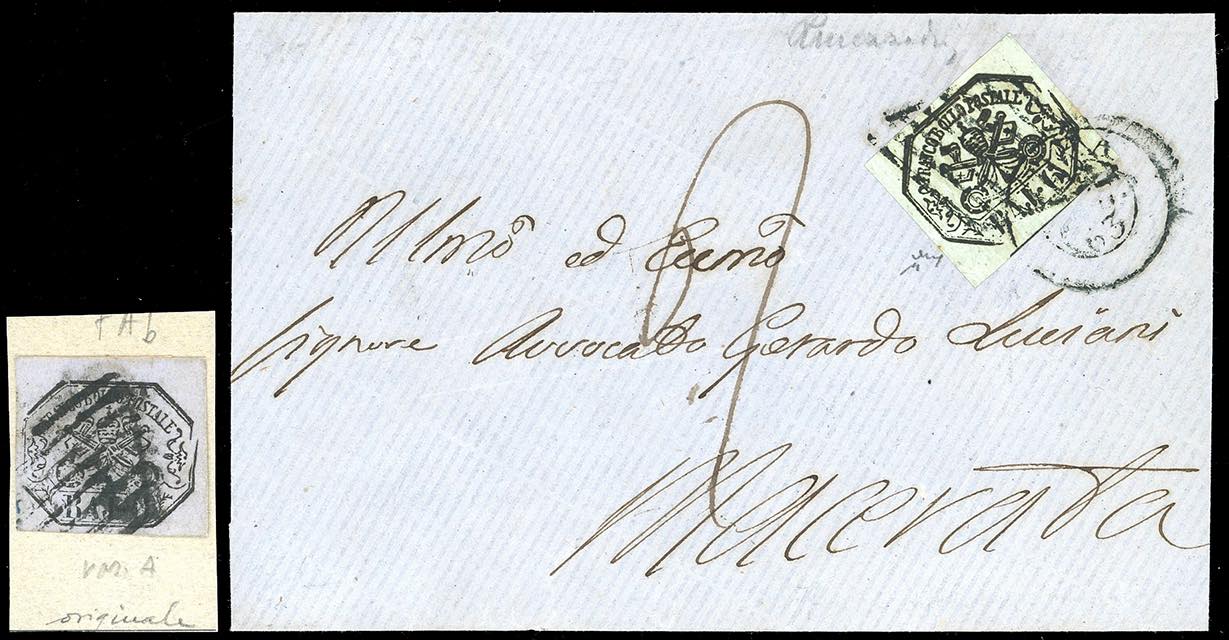 FRANCOBOLLO POSTALE
BAJ.
Illmo ed Eccmo
Signore Avvocato Gerardo Luciani
Macerata
FRANCOBOLLO POSTALE
BAJ
var. A
originale